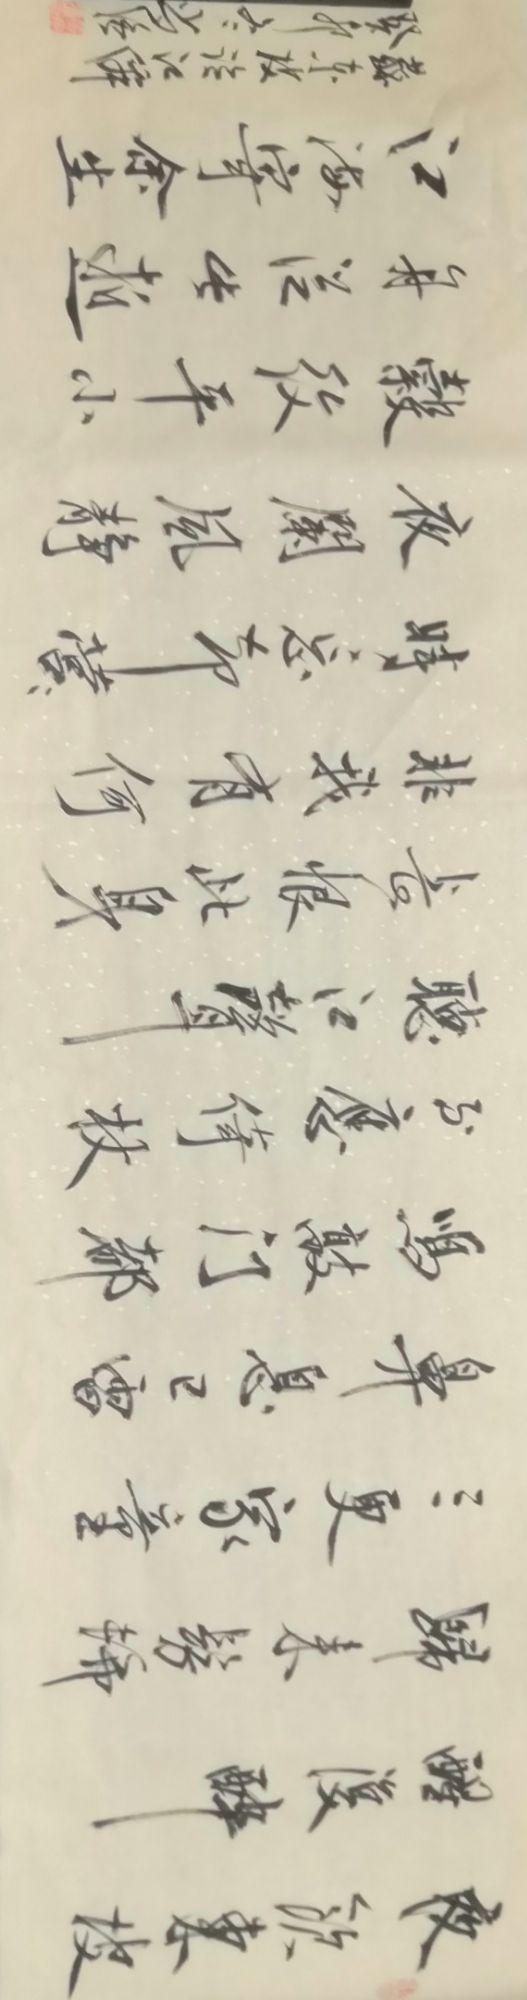 夜飲東坡
醒復醉
歸來髣髴
三更家童
鼻息已雷
鳴敲門都
不應倚杖
聽江聲
長恨此身
非我有何
時忘却營〻
夜闌風靜
縠紋平小
舟從此逝
江海寄余生
蘇東坡
癸卯